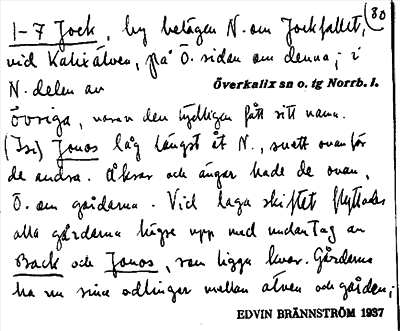 1-7 Jock, by belägen N. om Jockfallet, (80
vid Kalixälven, på Ö. sidan om denna; i
N. delen av Överkalix sn o. tg Norrb. l.
övriga, varav den tydligen fått sitt namn.
(Jsr) Jonos låg längst åt N., snett ovanför
de andra. Åkrar och ängar hade de ovan,
Ö. om gårdarna. Vid laga skiftet flyttades
alla gårdarna högre upp med undantag av
Back och Jonos, som ligga kvar. Gårdarna
ha nu sina odlingar mellan älven och gården;
EDVIN BRÄNNSTRÖM 1937